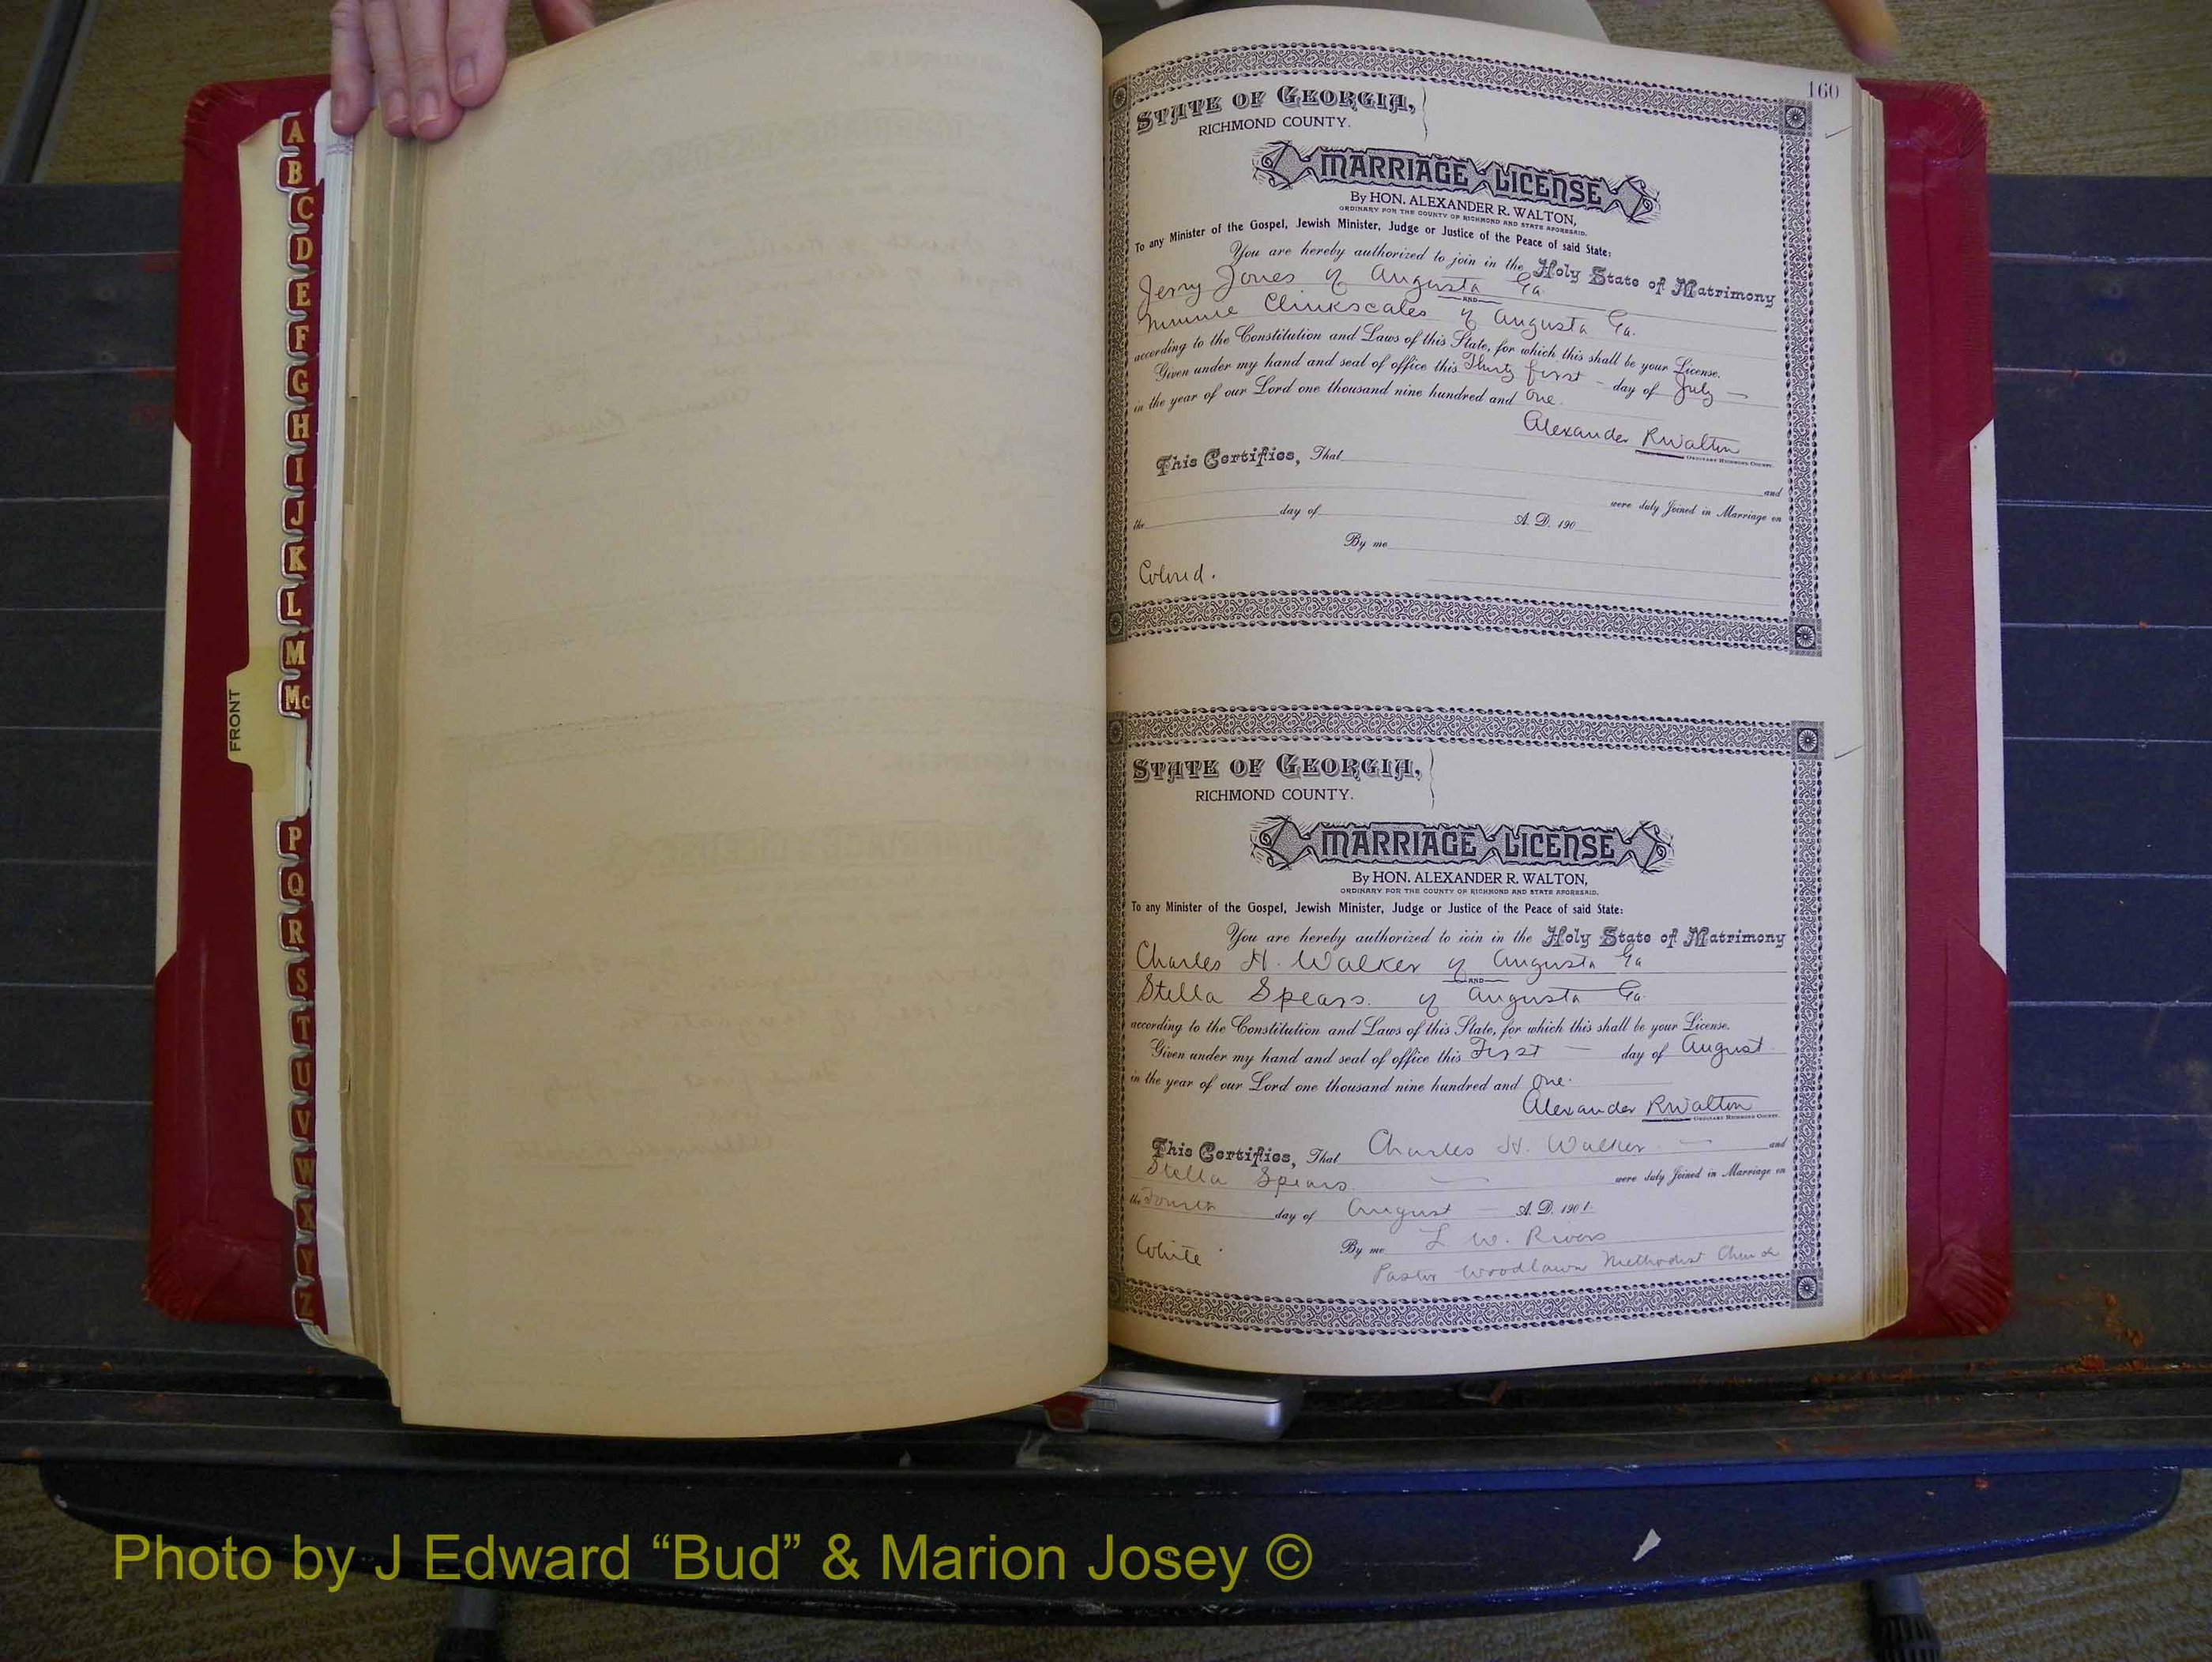 A
B
C
D
E
F
G
H
I
J
K
L
M
Mc
FRONT
P
Q
R
S
T
U
V
W
X
Y
Z
160
STATE OF GEORGIA,
RICHMOND COUNTY.
MARRIAGE LICENSE
By HON. ALEXANDER R. WALTON,
ORDINARY FOR THE COUNTY OF RICHMOND AND STATE AFORESAID.
To any Minister of the Gospel, Jewish Minister, Judge or Justice of the Peace of said State:
You are hereby authorized to join in the Holy State of Matrimony
Jerry Jones of Augusta Ga
AND
Minnie Clinkscales of Augusta Ga.
according to the Constitution and Laws of this State, for which this shall be your License.
Given under my hand and seal of office this Thirty first – day of July –
in the year of our Lord one thousand nine hundred and One.
Alexander R Walton
ORDINARY RICHMOND COUNTY.
This Certifies, That
and
were duly Joined in Marriage on
the day of A. D. 190
By me
Colored.
STATE OF GEORGIA,
RICHMOND COUNTY.
MARRIAGE LICENSE
By HON. ALEXANDER R. WALTON,
ORDINARY FOR THE COUNTY OF RICHMOND AND STATE AFORESAID.
To any Minister of the Gospel, Jewish Minister, Judge or Justice of the Peace of said State:
You are hereby authorized to join in the Holy State of Matrimony
Charles H. Walker of Augusta Ga
AND
Stella Spears. of Augusta Ga.
according to the Constitution and Laws of this State, for which this shall be your License.
Given under my hand and seal of office this First – day of August
in the year of our Lord one thousand nine hundred and One.
Alexander R Walton
ORDINARY RICHMOND COUNTY.
This Certifies, That Charles H. Walker – and
Stella Spears – were duly Joined in Marriage on
the Fourth day of August – A. D. 1901.
White By me L W. Rivers
Pastor Woodlawn Methodist Church
Photo by J Edward “Bud” & Marion Josey ©